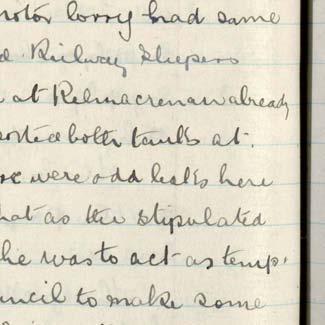 motor lorry had some
Railway Sleepers
at Kilmacrenan already
ported both tanks at.
were odd leaks here
hat as the stipulated
he was to act as temp.
uncil to make some